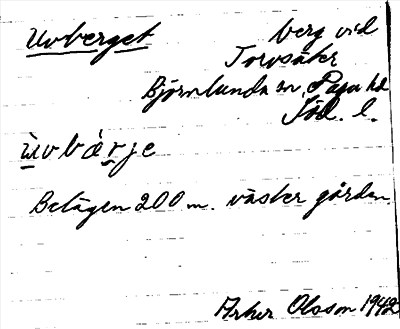 Uvberget berg vid
Torvsäter
Björnlunda sn, Daga hd
Söd. l.
ùvbàrje
Belägen 200 m. väster gården.
Olsson 1942